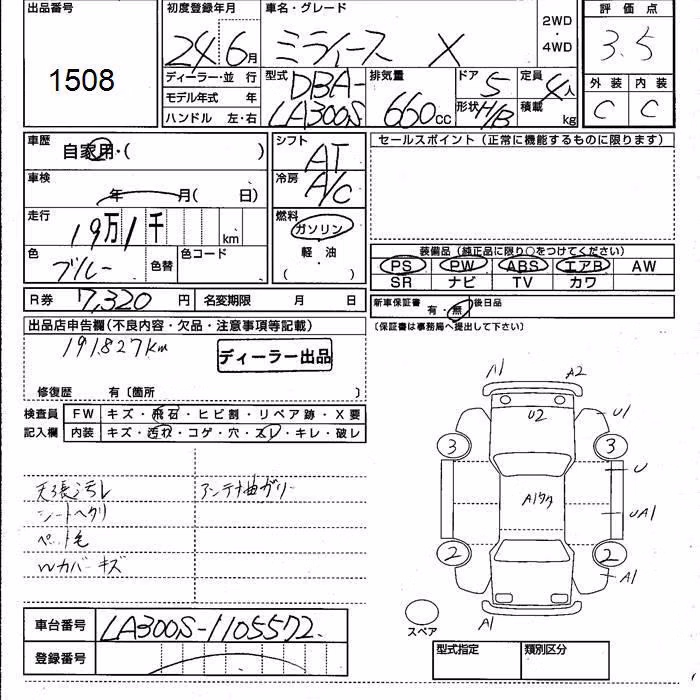 出品番号
1508
初度登録年月
24 6月
車名・グレード
ミライース X
2WD
・
4WD
評価点
3.5
外装 内装
C C
ディーラー・並行
モデル年式 年
ハンドル 左・右
型式
DBA-
LA300S
排気量
660cc
ドア 5
形状 H/B
定員 4人
積載 kg
車歴
自家用・( )
車検
年 月( 日)
走行
19万1千 km
色
ブルー
色替
色コード
R券 7,320円
名変期限 月 日
シフト
AT
冷房
A/C
燃料
ガソリン
軽・油
( )
セールスポイント(正常に機能するものに限ります)
装備品(純正品に限り○をつけてください)
PS PW ABS エアB AW
SR ナビ TV カワ
新車保証書 有・無 後日品
〔保証書は事務局へ提出して下さい〕
出品店申告欄(不良内容・欠品・注意事項等記載)
191827km
ディーラー出品
修復歴 有〔箇所 〕
検査員 FW キズ・飛石・ヒビ割・リペア跡・X要
記入欄 内装 キズ・汚れ・コゲ・穴・スレ・キレ・破レ
天張汚レ
アンテナ曲ガリ
シートヘタリ
ペット毛
Wカバーキズ
A1 A2
U2 U1
3 3
U
A1ワク
UA1
2 2
A1
A1
スペア
車台番号 LA300S-1105572
登録番号
型式指定 類別区分